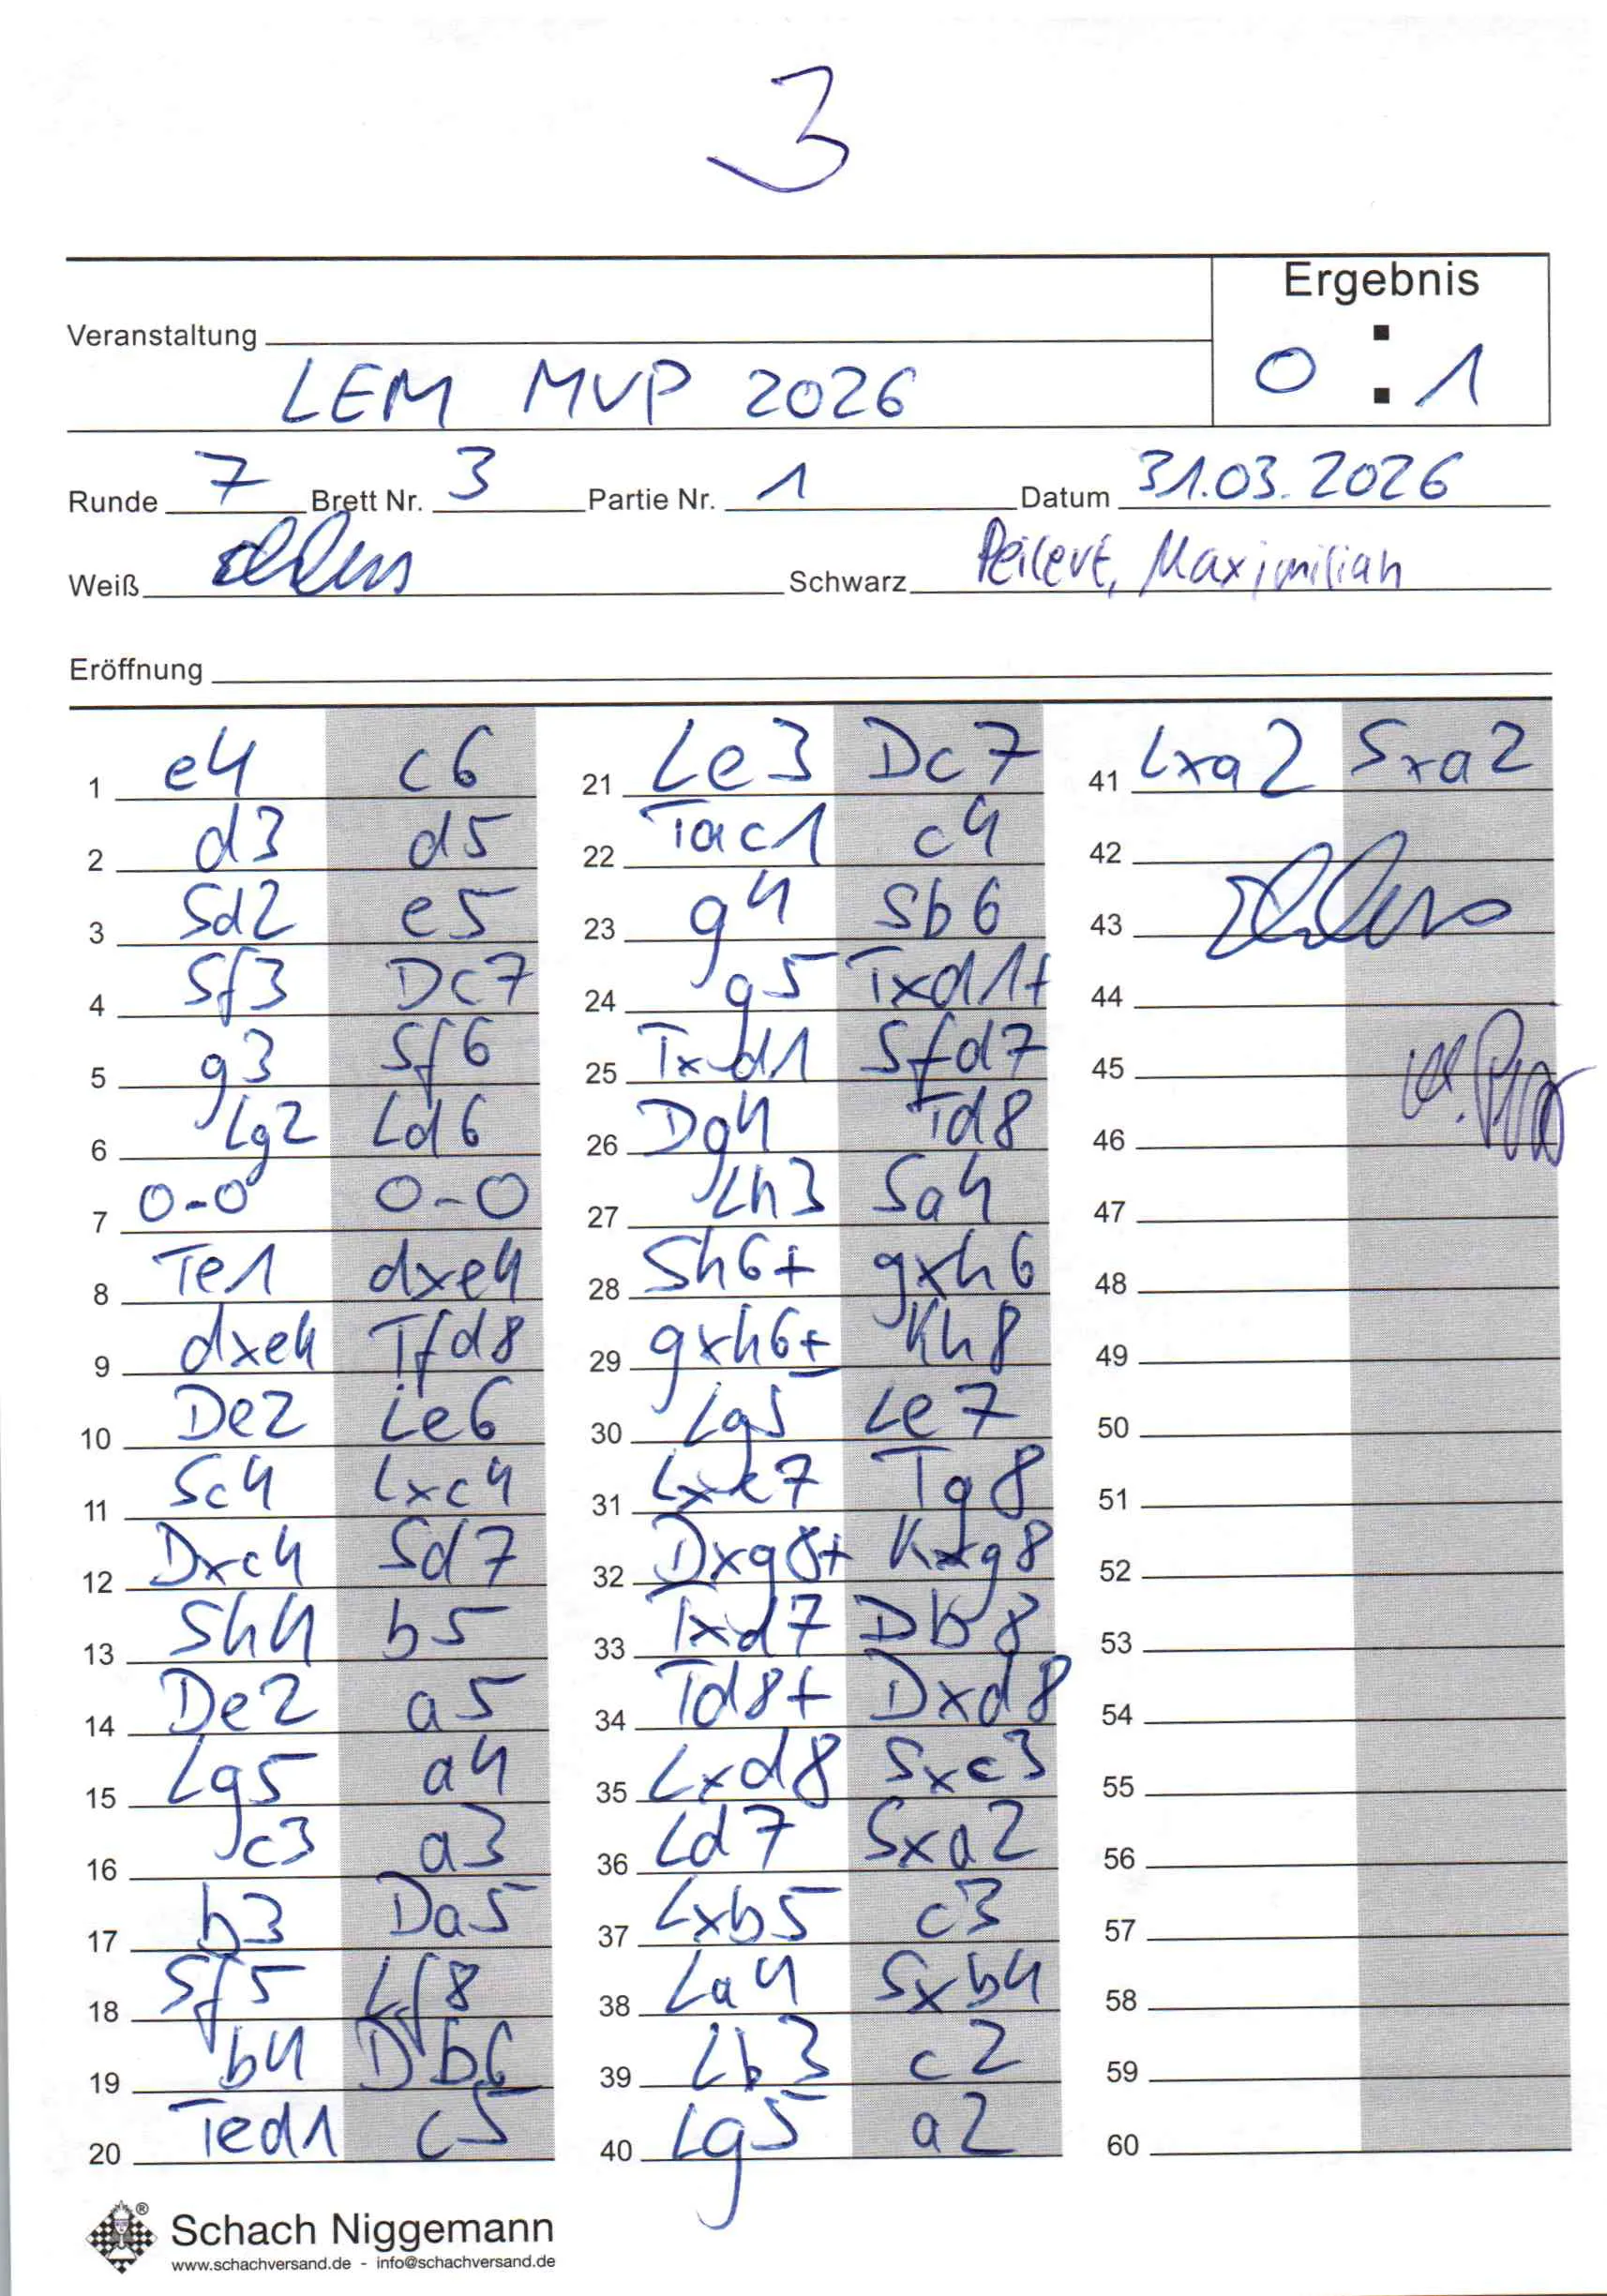 3
Ergebnis
Veranstaltung
LEM MVP 2026
0 : 1
Runde 7 Brett Nr. 3 Partie Nr. 1 Datum 31.03.2026
Weiß Schwarz Peilert, Maximilian
Eröffnung
1 e4 c6
2 d3 d5
3 Sd2 e5
4 Sf3 Dc7
5 g3 Sf6
6 Lg2 Ld6
7 0-0 0-0
8 Te1 dxe4
9 dxe4 Tfd8
10 De2 Le6
11 Sc4 Lxc4
12 Dxc4 Sd7
13 Sh4 b5
14 De2 a5
15 Lg5 a4
16 c3 a3
17 b3 Da5
18 Sf5 Lf8
19 b4 Db6
20 Ted1 c5
21 Le3 Dc7
22 Tac1 c4
23 g4 Sb6
24 g5 Txd1+
25 Txd1 Sfd7
26 Dg4 Td8
27 Lh3 Sa4
28 Sh6+ gxh6
29 gxh6+ Kh8
30 Lg5 Le7
31 Lxe7 Tg8
32 Dxg8+ Kxg8
33 Txd7 Db8
34 Td8+ Dxd8
35 Lxd8 Sxc3
36 Ld7 Sxa2
37 Lxb5 c3
38 La4 Sxb4
39 Lb3 c2
40 Lg5 a2
41 Lxa2 Sxa2
42
43
44
45
46
47
48
49
50
51
52
53
54
55
56
57
58
59
60
Schach Niggemann
www.schachversand.de - info@schachversand.de